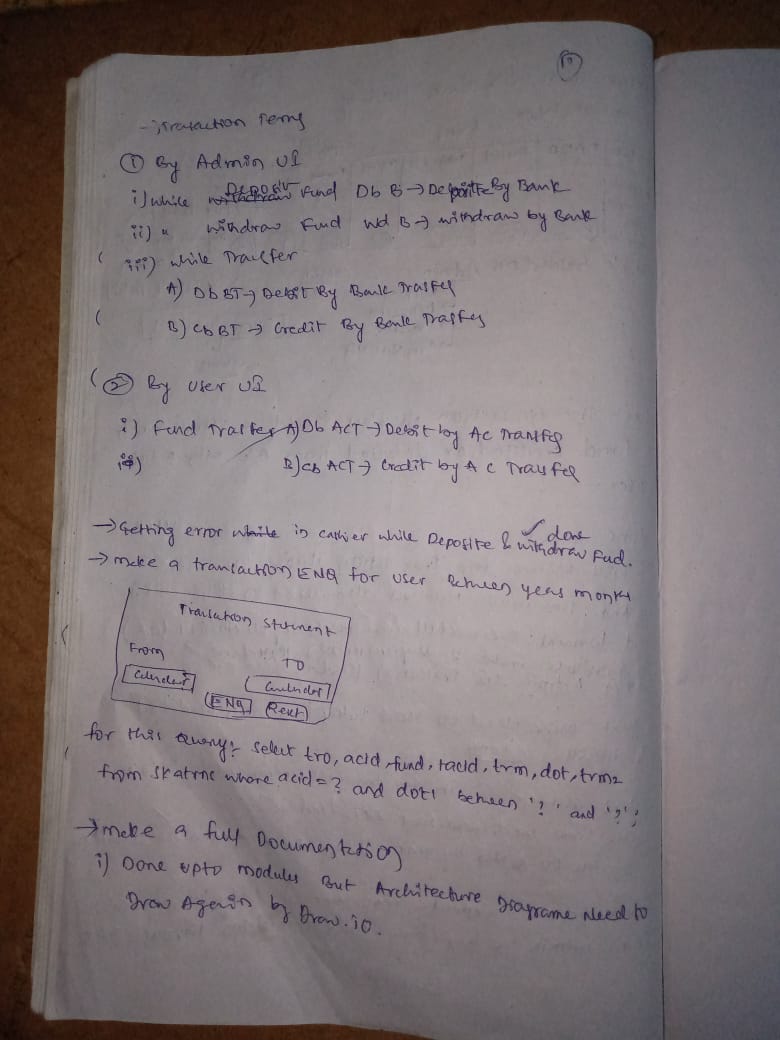 10
→ Trasaction Terms
① By Admin UI
i) while Deposit Fund Db B → Deposite By Bank
ii) " withdraw Fund Wd B → withdraw by Bank
iii) while Traisfer
A) Db BT → Debit By Bank Trasfer
B) Cb BT → Credit By Bank Trasfer
② By User UI
i) Fund Trasfer A) Db ACT → Debit by Ac Transfer
B) Cb ACT → Credit by A C Trausfer
→ Getting error in cashier while Deposite & withdraw Fud. ✓ done
→ make a transaction ENQ for user Between years month
Transaction Statement
From To
Calendar Calendar
ENQ Reset
for this Query: select tro, acid, fund, tacid, trm, dot, trm2
from skatrnc where acid = ? and dot1 between '?' and '?';
→ make a full Documentation
i) Done upto modules But Architecture Diagrame Need to
Draw Again by Draw.io.